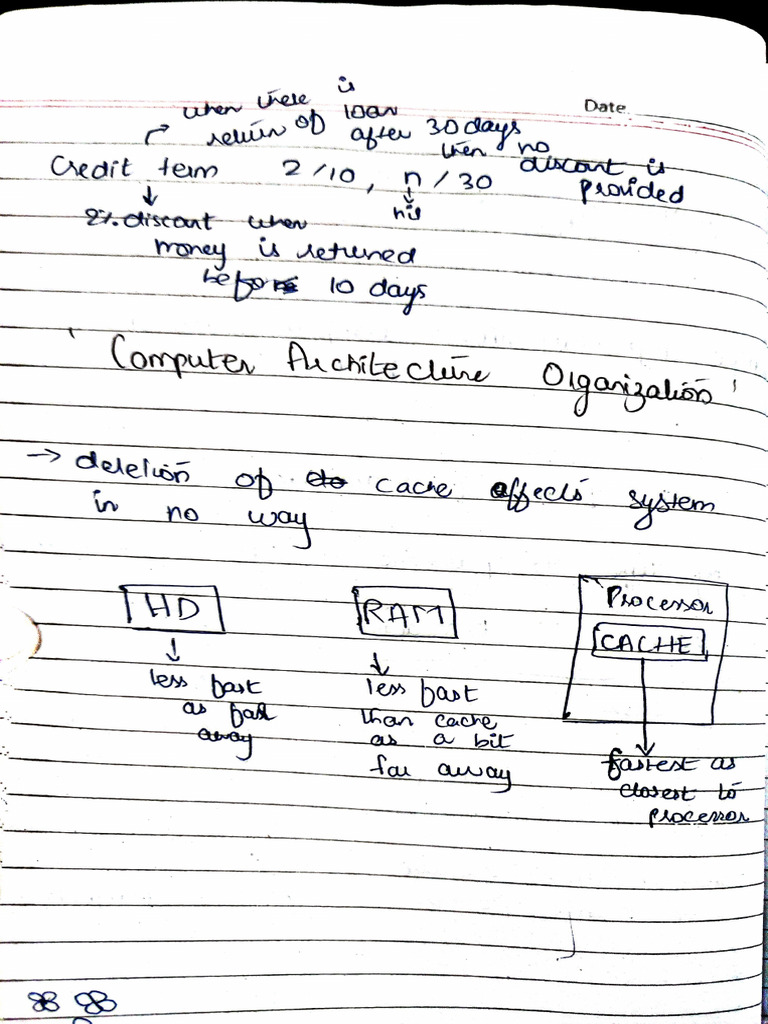 Date
when there is
return of loan
after 30 days
then no
discount is
provided
Credit term 2/10, n/30
nil
2% discount when
money is returned
before 10 days
' Computer Architecture Organization '
→ deletion of cache affects system
in no way
HD
RAM
Processor
CACHE
less fast
as far
away
less fast
than cache
as a bit
far away
fastest as
closest to
processor